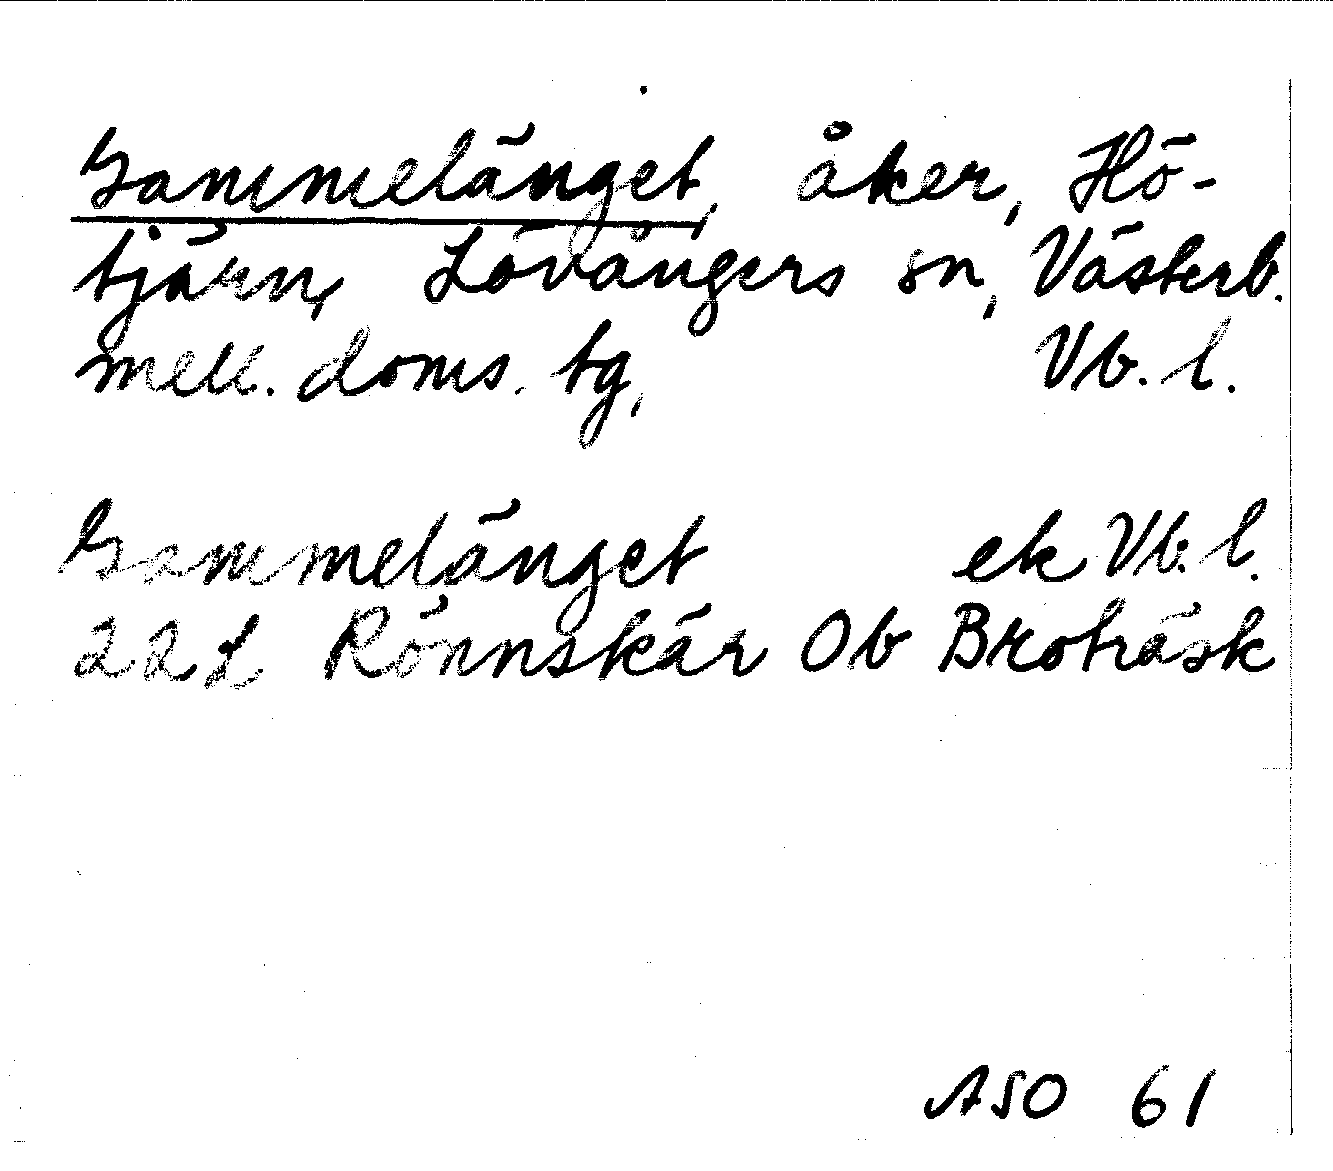 Gammelänget, åker, Hö-
tjärn, Lövångers sn, Västerb.
mell. doms. tg, Vb. l.
Gammelänget ek Vb. l.
22L Rönnskär Ob Broträsk
ASO 61